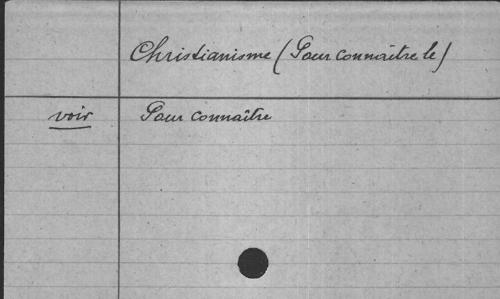 Christianisme (Pour connaître le)
voir Pour connaître